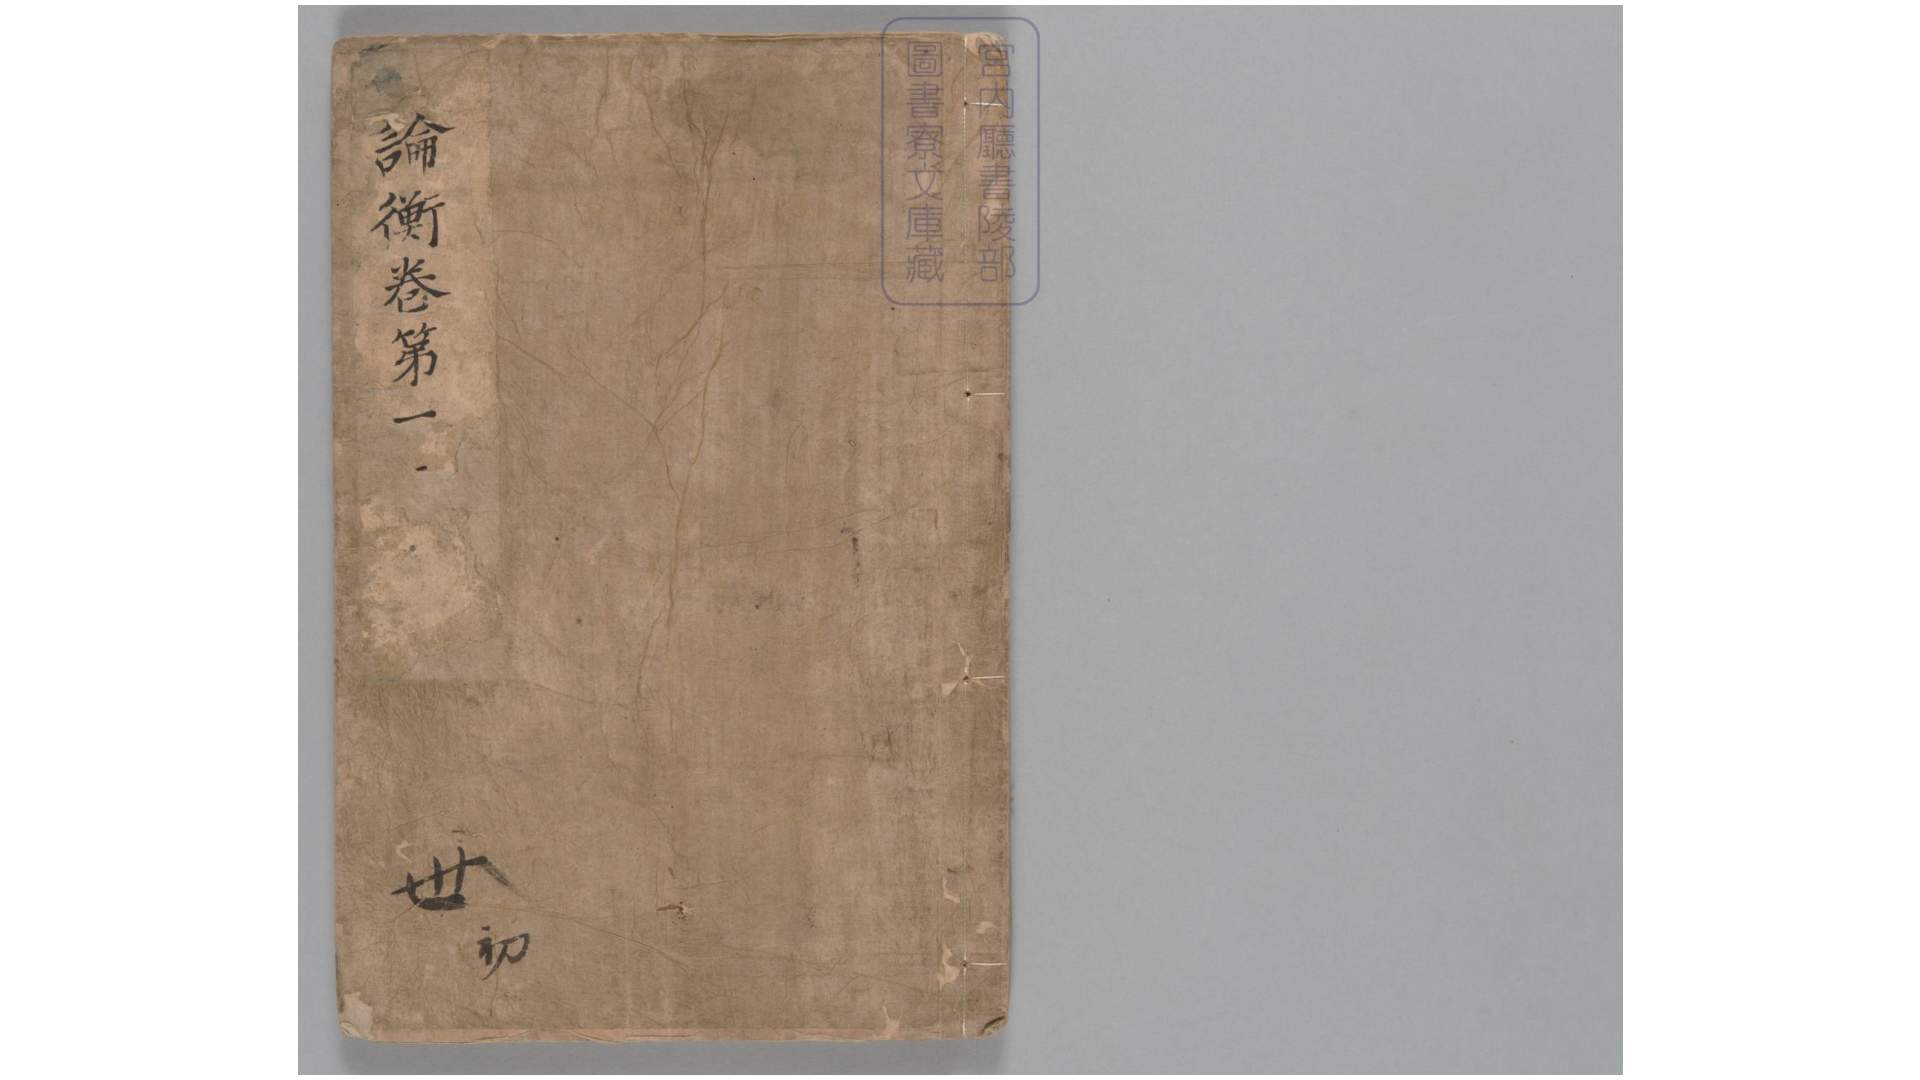 宮内廳書陵部
圖書寮文庫藏
論衡卷第一
丗
初